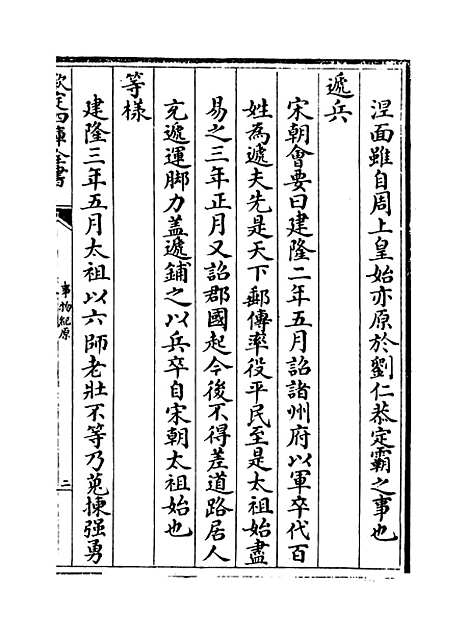 涅面雖自周上皇始亦原於劉仁恭定霸之事也
遞兵
宋朝會要曰建隆二年五月詔諸州府以軍卒代百
姓為遞夫先是天下郵傳率役平民至是太祖始盡
易之三年正月又詔郡國起今後不得差道路居人
充遞運脚力蓋遞鋪之以兵卒自宋朝太祖始也
等樣
建隆三年五月太祖以六師老壯不等乃蒐揀强勇
欽定四庫全書
事物紀原
二